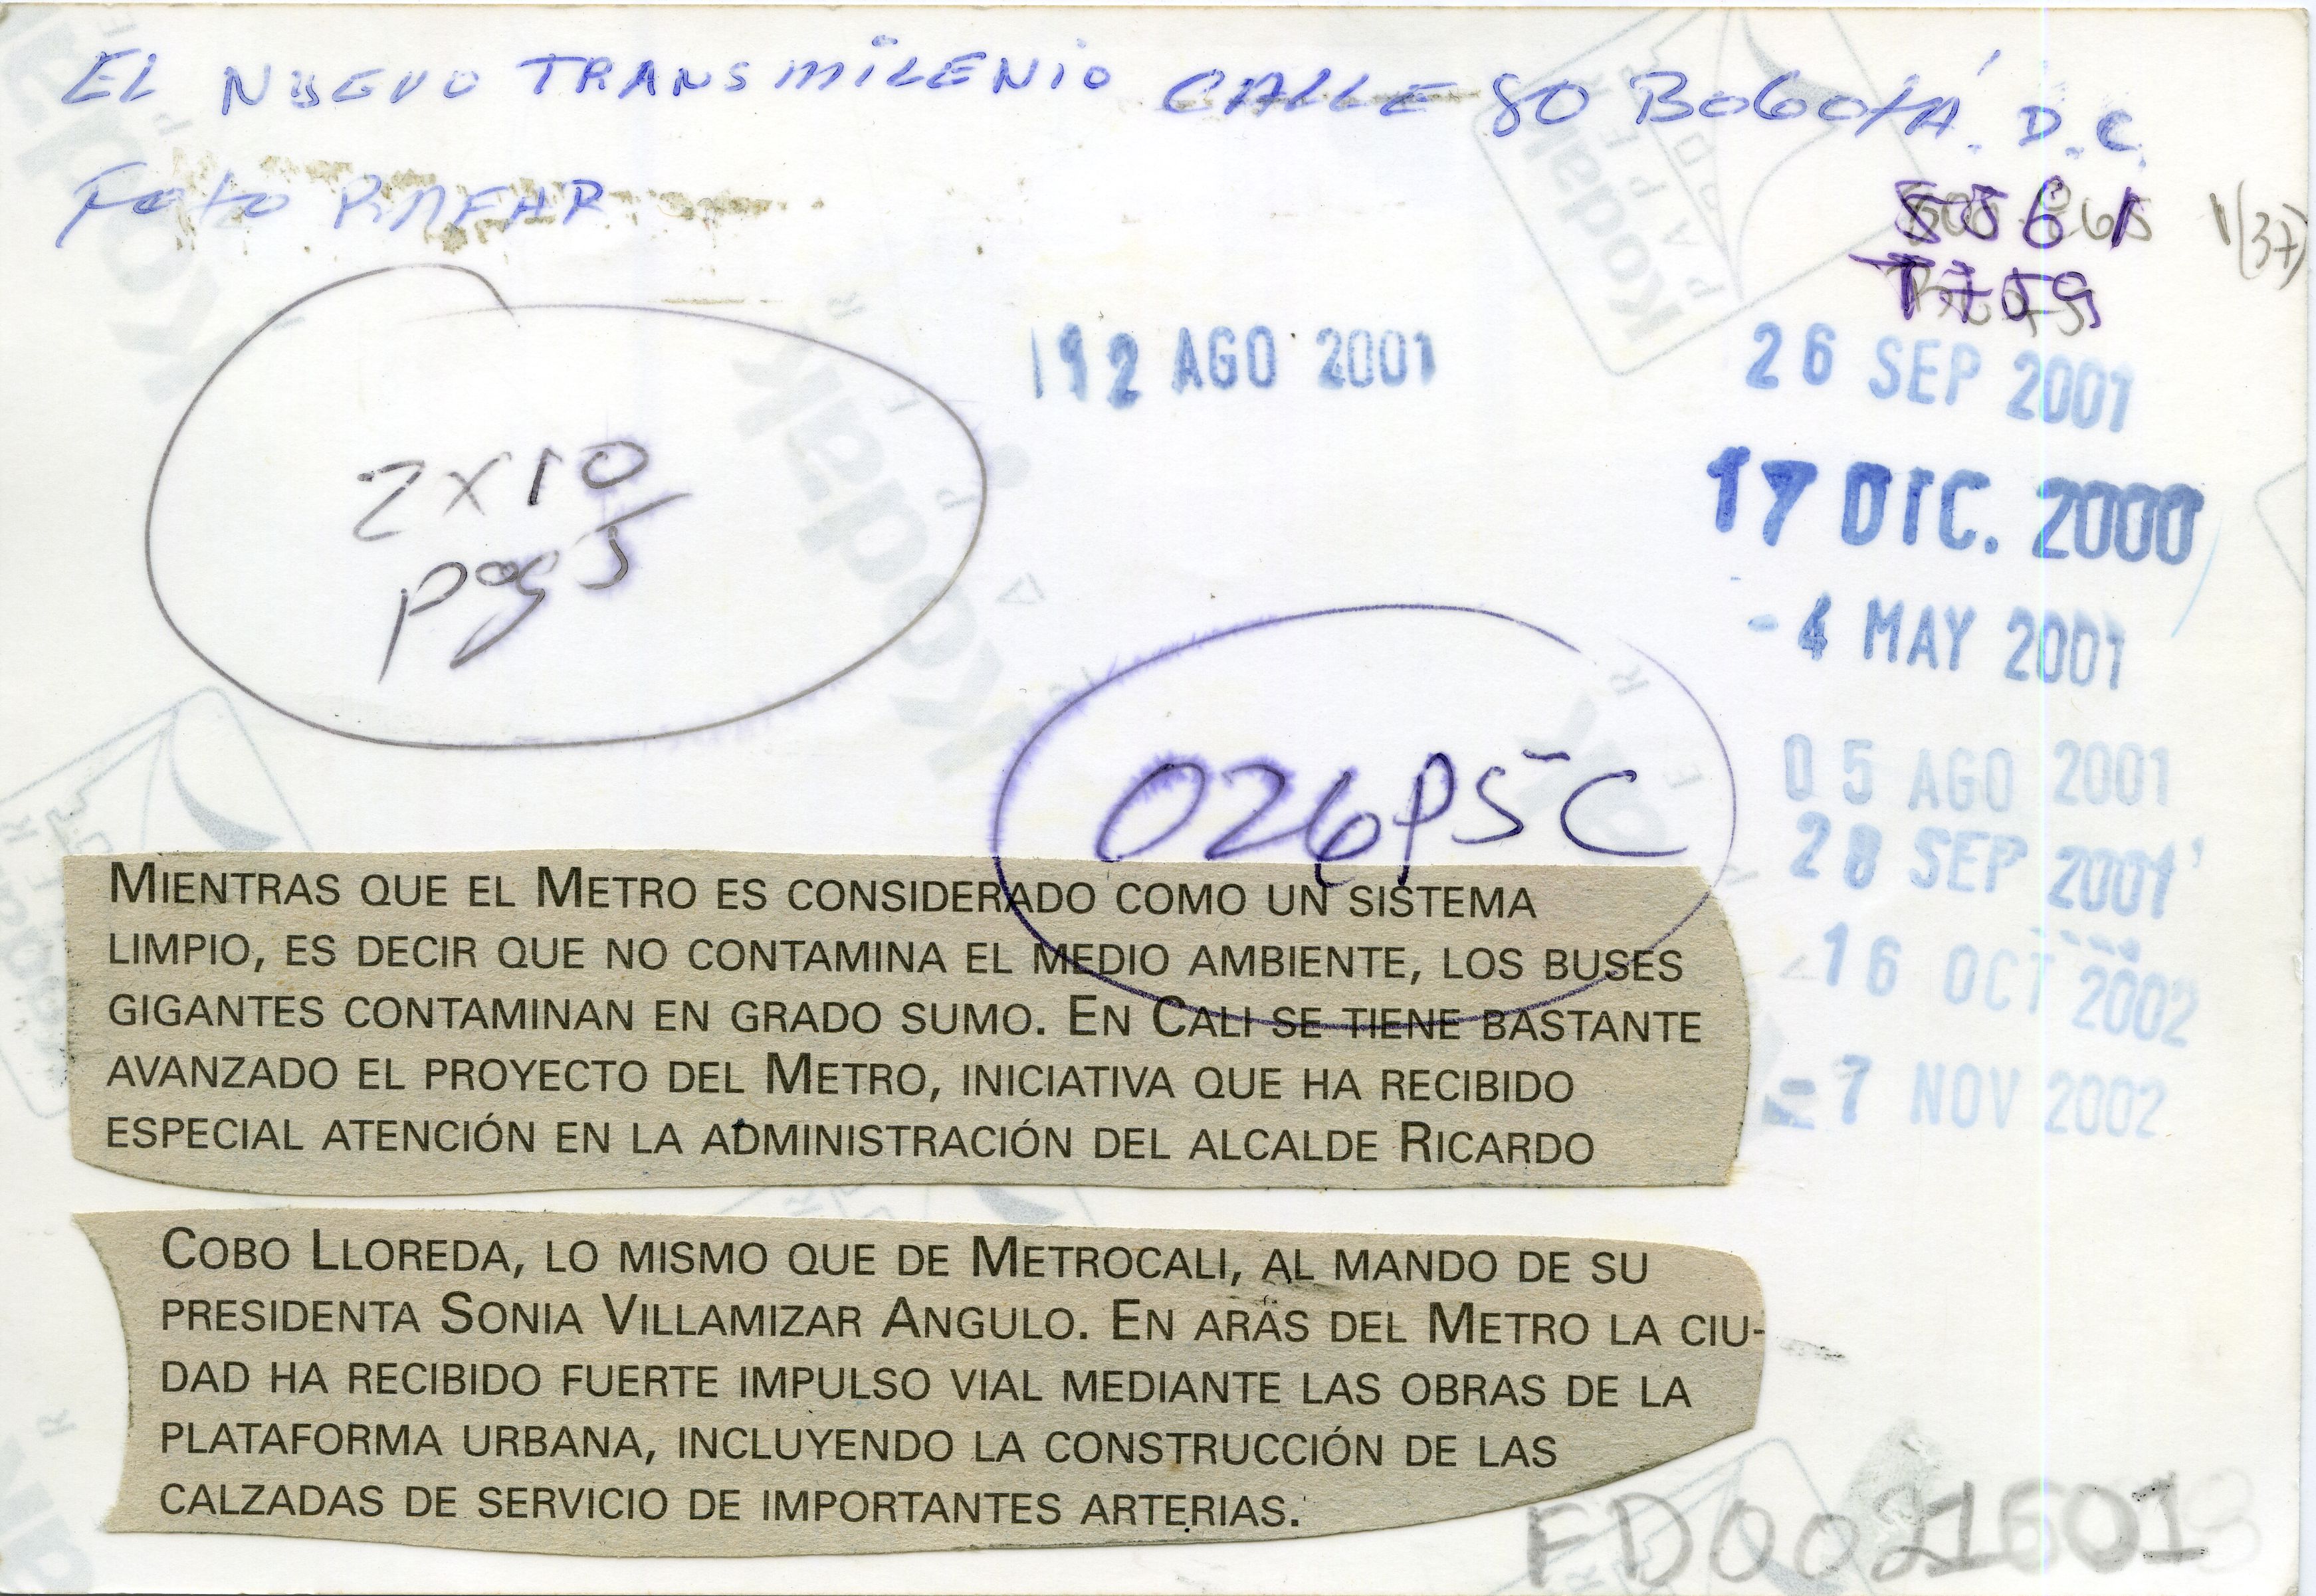 EL NUEVO TRANSMILENIO CALLE 80 BOGOTÁ. D.C.
Foto
1(37)
12 AGO 2001
26 SEP 2001
17 DIC. 2000
2x10
pag 5
- 4 MAY 2001
05 AGO 2001
026P5C
28 SEP 2001
16 OCT 2002
7 NOV 2002
MIENTRAS QUE EL METRO ES CONSIDERADO COMO UN SISTEMA
LIMPIO, ES DECIR QUE NO CONTAMINA EL MEDIO AMBIENTE, LOS BUSES
GIGANTES CONTAMINAN EN GRADO SUMO. EN CALI SE TIENE BASTANTE
AVANZADO EL PROYECTO DEL METRO, INICIATIVA QUE HA RECIBIDO
ESPECIAL ATENCIÓN EN LA ADMINISTRACIÓN DEL ALCALDE RICARDO
COBO LLOREDA, LO MISMO QUE DE METROCALI, AL MANDO DE SU
PRESIDENTA SONIA VILLAMIZAR ANGULO. EN ARAS DEL METRO LA CIU-
DAD HA RECIBIDO FUERTE IMPULSO VIAL MEDIANTE LAS OBRAS DE LA
PLATAFORMA URBANA, INCLUYENDO LA CONSTRUCCIÓN DE LAS
CALZADAS DE SERVICIO DE IMPORTANTES ARTERIAS.
FD0021601
Kodak